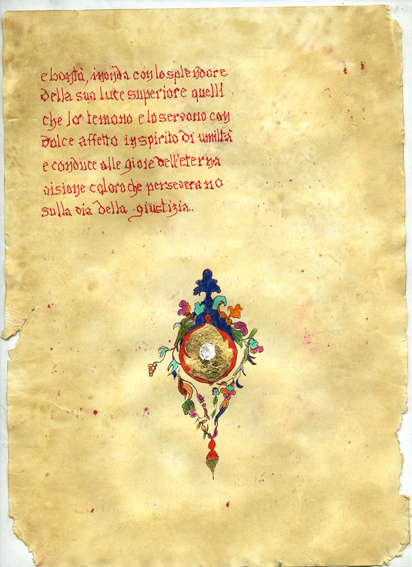 e bontà, inonda con lo splendore
della sua luce superiore quelli
che lo temono e lo servono con
dolce affetto in spirito di umiltà
e conduce alle gioie dell'eterna
visione coloro che perseverano
sulla via della giustizia.